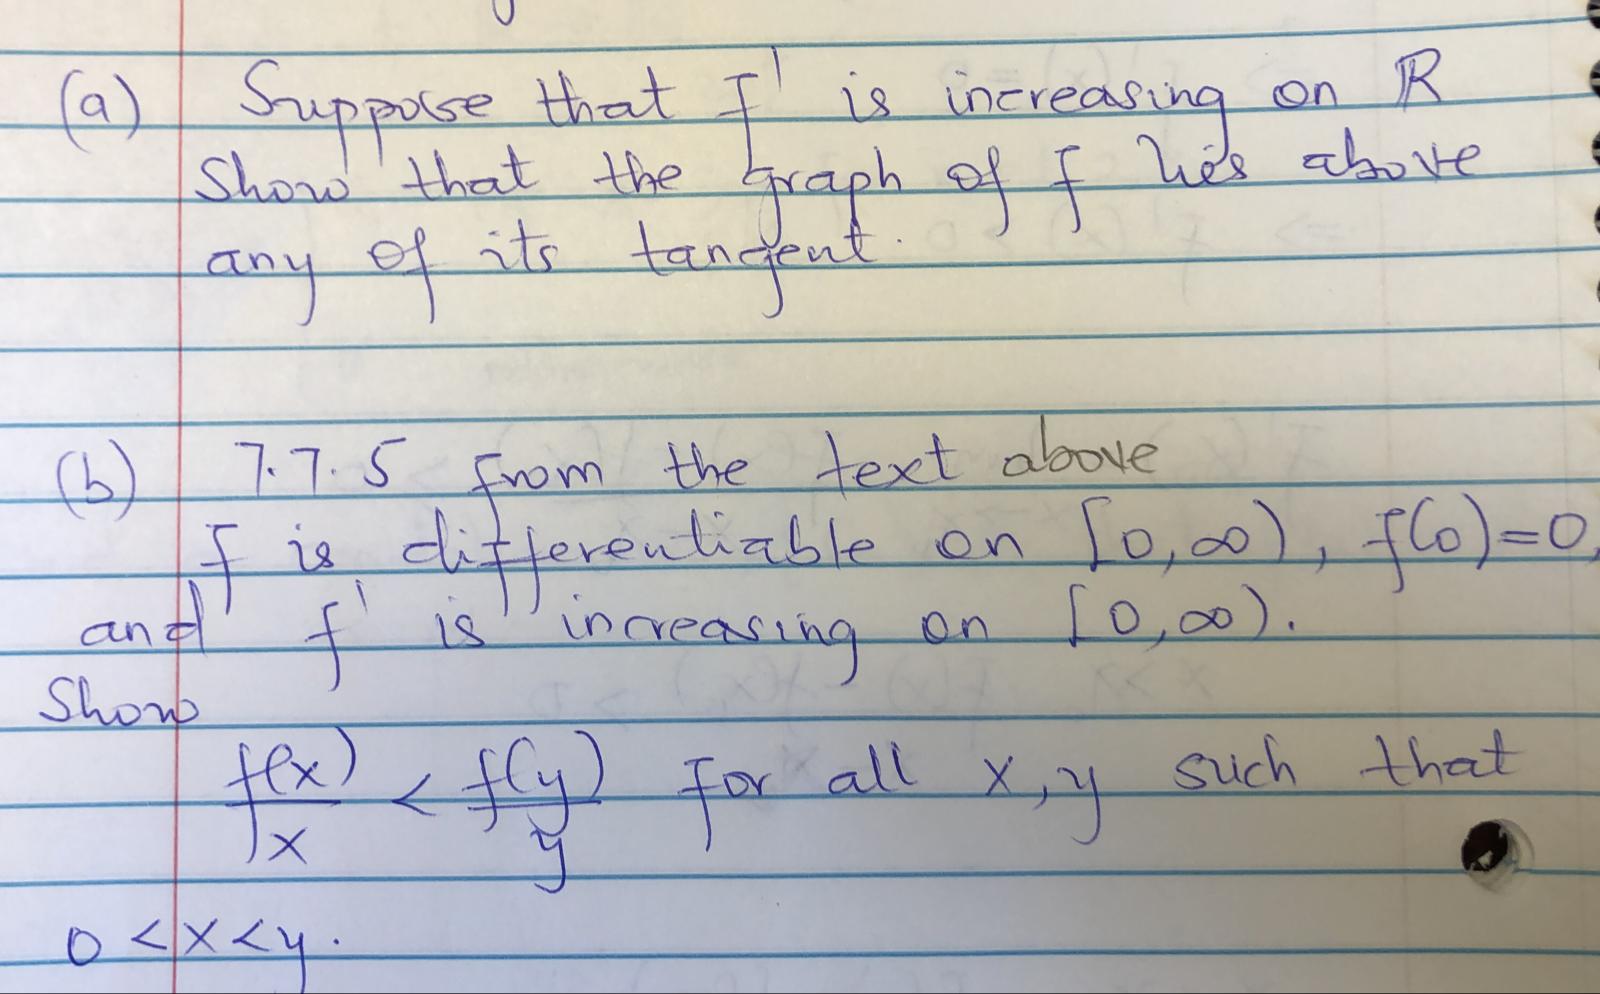 (a) Suppose that f' is increasing on ℝ
Show that the graph of f lies above
any of its tangent.
(b) 7.7.5 from the text above
f is differentiable on [0,∞), f(0)=0,
and f' is increasing on [0,∞).
Show
f(x)/x < f(y)/y for all x,y such that
0<x<y.